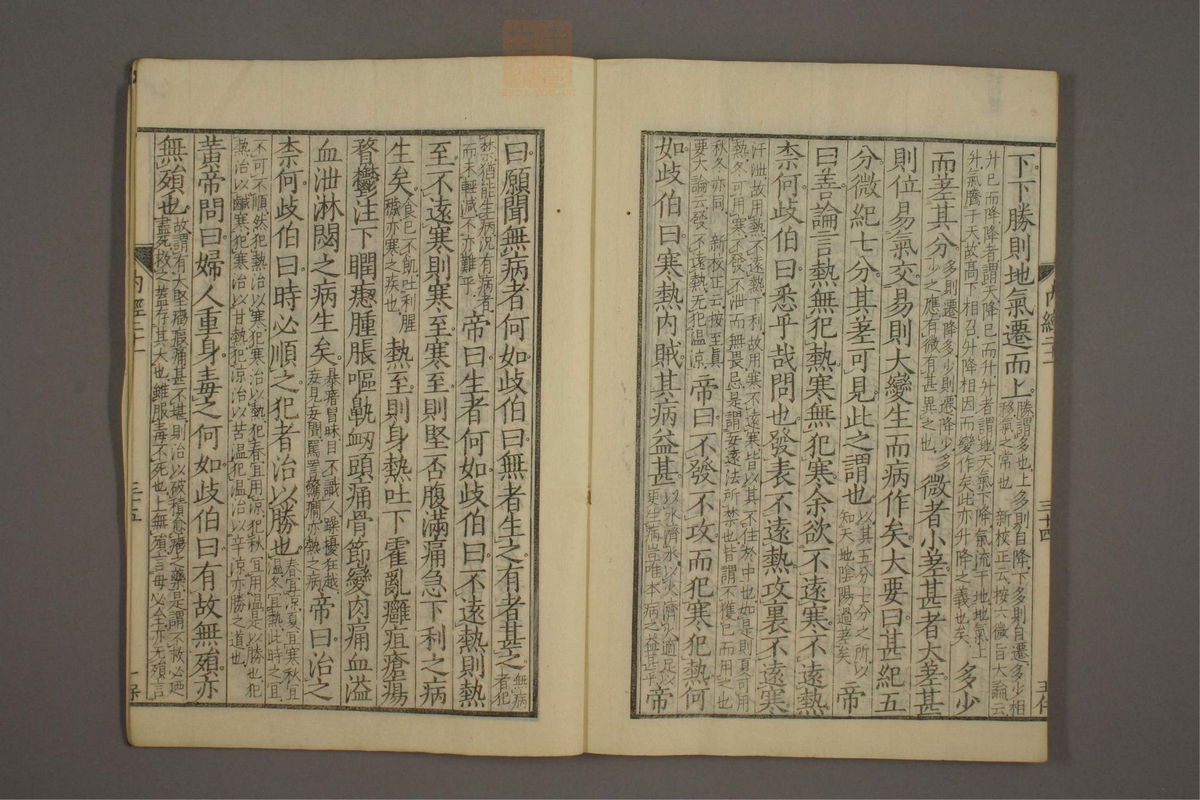 下下勝則地氣遷而上勝謂多也上多則自降下多則自遷多少相移氣之常也新校正云按六微旨大論云
升已而降降者謂天降已而升升者謂地天氣下降氣流于地地氣上升氣騰于天故高下相召升降相因而變作矣此亦升降之義也矣多少
而差其分多則遷降多少則遷降少多少之應有微有甚異之也微者小差甚者大差甚
則位易氣交易則大變生而病作矣大要曰甚紀五
分微紀七分其差可見此之謂也以其五分七分之所以知天地陰陽過差矣帝
曰善論言熱無犯熱寒無犯寒余欲不遠寒不遠熱
柰何歧伯曰悉乎哉問也發表不遠熱攻裏不遠寒
汗泄故用熱不遠熱下利故用寒不遠寒皆以其不住於中也如是則夏可用熱冬可用寒不發不泄而無畏忌是謂妄遠法所禁也皆謂不獲已而用之也
秋冬亦同新校正云按至真要大論云發不遠熱无犯温涼帝曰不發不攻而犯寒犯熱何
如歧伯曰寒熱内賊其病益甚以水濟水以火濟火適足以更生病豈唯本病之益甚乎帝
内經二十一
三十四
曰願聞無病者何如歧伯曰無者生之有者甚之無病者犯
禁猶能生病況有病者而未輕減不亦難乎帝曰生者何如歧伯曰不遠熱則熱
至不遠寒則寒至寒至則堅否腹滿痛急下利之病
生矣食已不飢吐利腥穢亦寒之疾也熱至則身熱吐下霍亂癰疽瘡瘍
瞀鬱注下瞤瘛腫脹嘔鼽衂頭痛骨節變肉痛血溢
血泄淋閟之病生矣暴瘖冒昧目不識人躁擾狂越妄見妄聞罵詈驚癎亦熱之病帝曰治之
柰何歧伯曰時必順之犯者治以勝也春宜涼夏宜寒秋宜温冬宜熱此時之宜
不可不順然犯熱治以寒犯寒治以熱犯春宜用涼犯秋宜用温是以勝也犯熱治以鹹寒犯寒治以甘熱犯涼治以苦温犯温治以辛涼亦勝之道也
黃帝問曰婦人重身毒之何如歧伯曰有故無殞亦
無殞也故謂有大堅癥瘕痛甚不堪則治以破積愈癥之藥是謂不救必廼盡死救之蓋存其大也雖服毒不死也上無殞言母必全亦无殞言
内經二十一
三十五